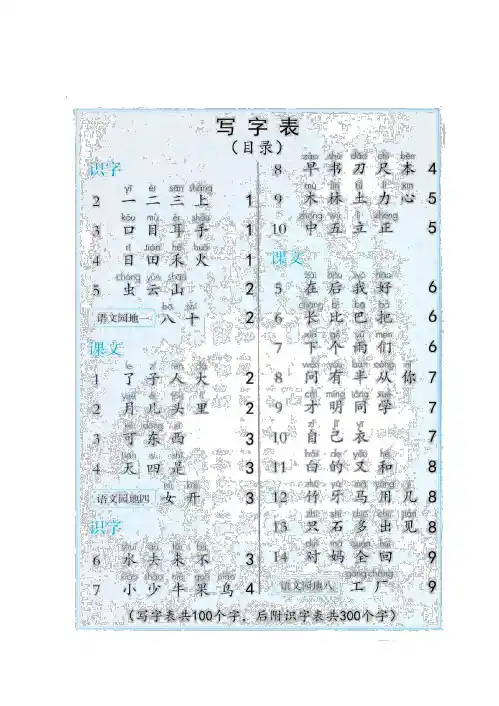 写字表
（目录）
识字
yī èr sān shàng
2 一二三上 1
kǒu mù ěr shǒu
3 口目耳手 1
rì tián hé huǒ
4 日田禾火 1
chóng yún shān
5 虫云山 2
bā shí
语文园地一 八十 2
课文
le zǐ rén dà
1 了子人大 2
yuè ér tóu lǐ
2 月儿头里 2
kě dōng xī
3 可东西 3
tiān sì shì
4 天四是 3
nǚ kāi
语文园地四 女开 3
识字
shuǐ qù lái bù
6 水去来不 3
xiǎo shǎo niú guǒ niǎo
7 小少牛果鸟 4
zǎo shū dāo chǐ běn
8 早书刀尺本 4
mù lín tǔ lì xīn
9 木林土力心 5
zhōng wǔ lì zhèng
10 中五立正 5
课文
zài hòu wǒ hǎo
5 在后我好 6
cháng bǐ bā bǎ
6 长比巴把 6
xià gè yǔ men
7 下个雨们 6
wèn yǒu bàn cóng nǐ
8 问有半从你 7
cái míng tóng xué
9 才明同学 7
zì jǐ yī
10 自己衣 7
bái de yòu hé
11 白的又和 8
zhú yá mǎ yòng jǐ
12 竹牙马用几 8
zhǐ shí duō chū jiàn
13 只石多出见 8
duì mā quán huí
14 对妈全回 9
gōng chǎng
语文园地八 工厂 9
（写字表共100个字，后附识字表共300个字）